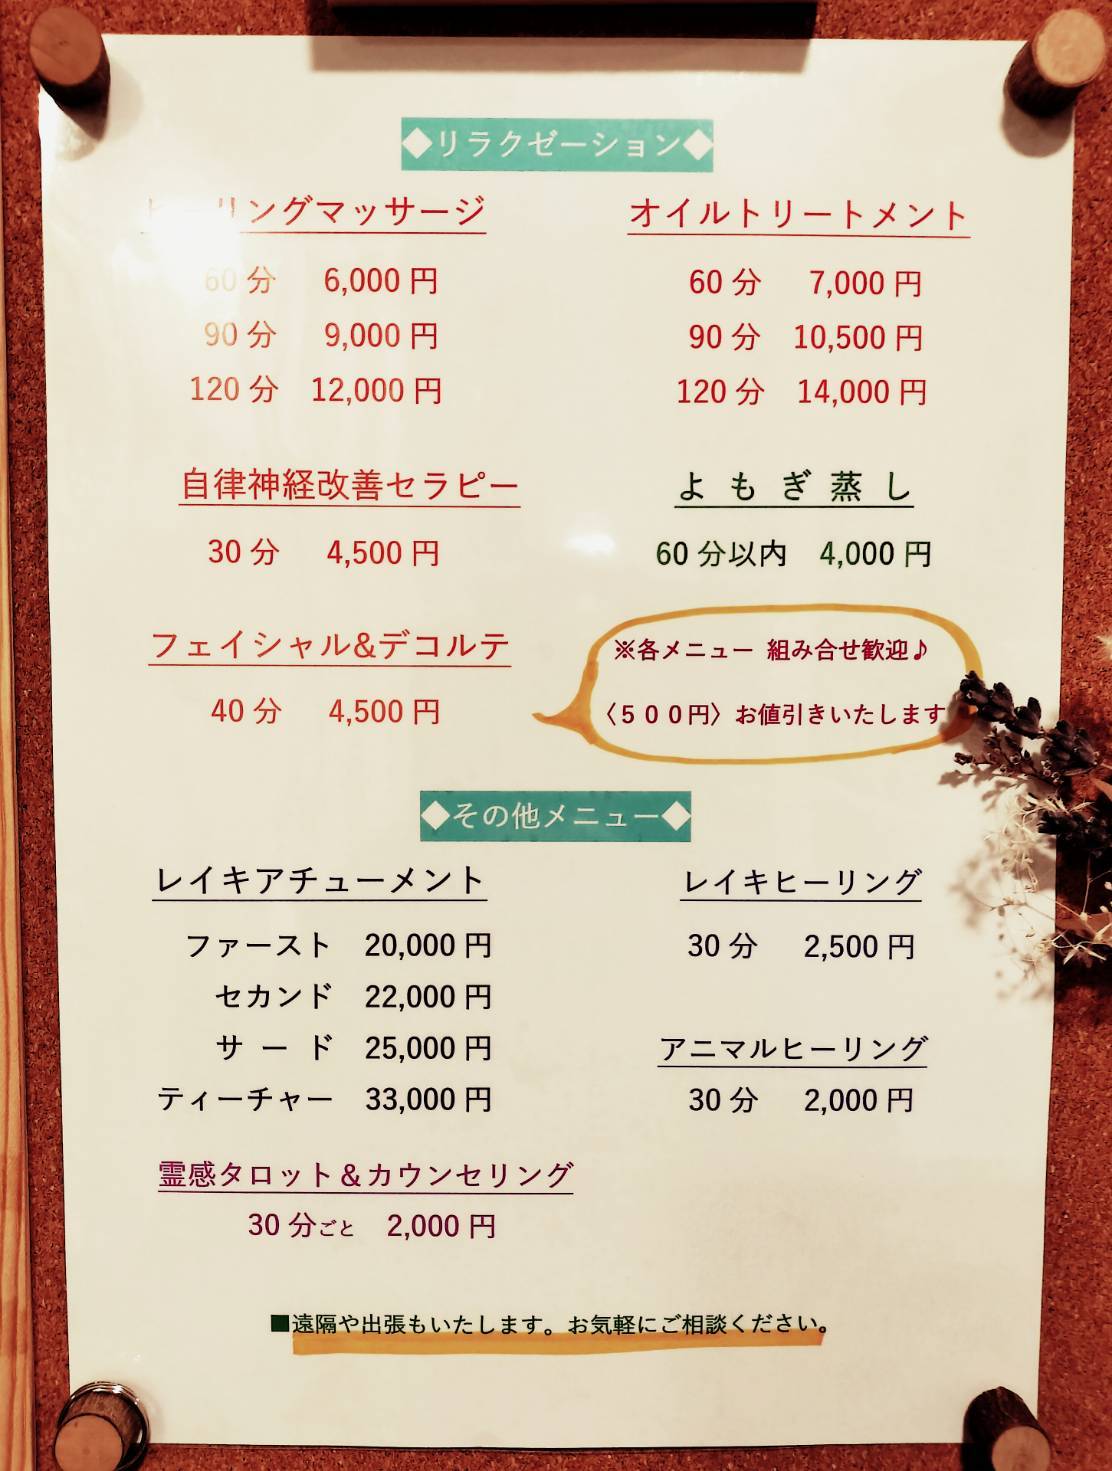 ◆リラクゼーション◆
ヒーリングマッサージ
60分 6,000円
90分 9,000円
120分 12,000円
オイルトリートメント
60分 7,000円
90分 10,500円
120分 14,000円
自律神経改善セラピー
30分 4,500円
よもぎ蒸し
60分以内 4,000円
フェイシャル&デコルテ
40分 4,500円
※各メニュー 組み合せ歓迎♪
〈５００円〉お値引きいたします
◆その他メニュー◆
レイキアチューメント
ファースト 20,000円
セカンド 22,000円
サード 25,000円
ティーチャー 33,000円
レイキヒーリング
30分 2,500円
アニマルヒーリング
30分 2,000円
霊感タロット＆カウンセリング
30分ごと 2,000円
■遠隔や出張もいたします。お気軽にご相談ください。